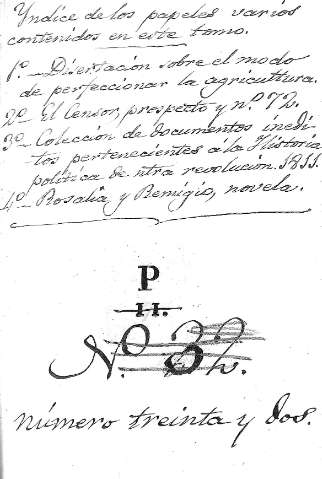 Yndice de los papeles varios
contenidos en este tomo.
1º.- Disertación sobre el modo
de perfeccionar la agricultura.
2º.- El Censor, prospecto y n.º 72.
3º.- Coleccion de documentos inedi-
tos pertenecientes a la Historia
politica de ntra revolucion. 1811.
4º.- Rosalia y Remigio, novela.
P
II.
N.º 32.
número treinta y dos.